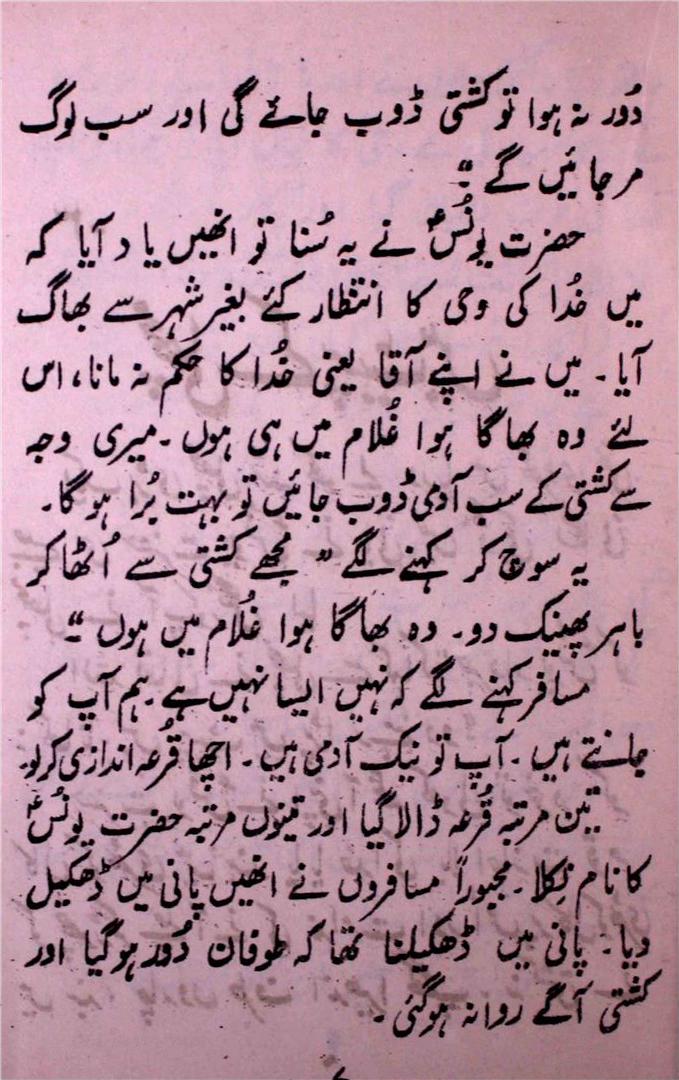 دُور نہ ہوا تو کشتی ڈوب جائے گی اور سب لوگ
مر جائیں گے۔“
حضرت یونُسؑ نے یہ سُنا تو انھیں یاد آیا کہ
میں خُدا کی وحی کا انتظار کئے بغیر شہر سے بھاگ
آیا۔ میں نے اپنے آقا یعنی خُدا کا حکم نہ مانا، اس
لئے وہ بھاگا ہوا غُلام میں ہی ہوں۔ میری وجہ
سے کشتی کے سب آدمی ڈوب جائیں تو بہت بُرا ہو گا۔
یہ سوچ کر کہنے لگے ”مجھے کشتی سے اُٹھا کر
باہر پھینک دو۔ وہ بھاگا ہوا غُلام میں ہوں“
مسافر کہنے لگے کہ نہیں ایسا نہیں ہے۔ ہم آپ کو
جانتے ہیں۔ آپ تو نیک آدمی ہیں۔ اچھا قُرعہ اندازی کرلو۔
تین مرتبہ قُرعہ ڈالا گیا اور تینوں مرتبہ حضرت یونُسؑ
کا نام نِکلا۔ مجبوراً مسافروں نے انھیں پانی میں ڈھکیل
دیا۔ پانی میں ڈھکیلنا تھا کہ طوفان دُور ہو گیا اور
کشتی آگے روانہ ہو گئی۔